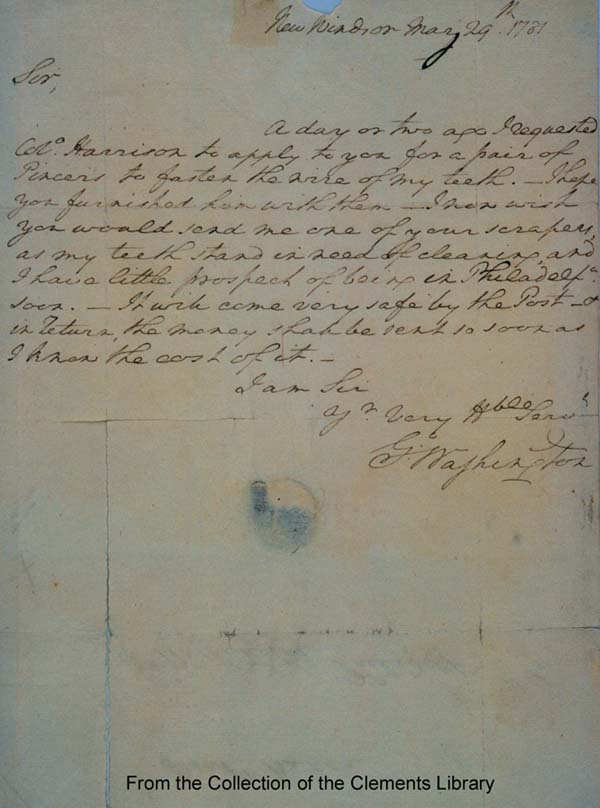 New Windsor May 29th. 1781
Sir,
A day or two ago I requested
Colo. Harrison to apply to you for a pair of
Pincers to fasten the wire of my teeth. — I hope
you furnished him with them — I now wish
you would send me one of your scrapers,
as my teeth stand in need of cleaning, and
I have little prospect of being in Philadelpa.
soon. — It will come very safe by the Post — &
in return, the money shall be sent so soon as
I know the cost of it. —
I am Sir
Yr Very Hble Servt
Go: Washington
From the Collection of the Clements Library